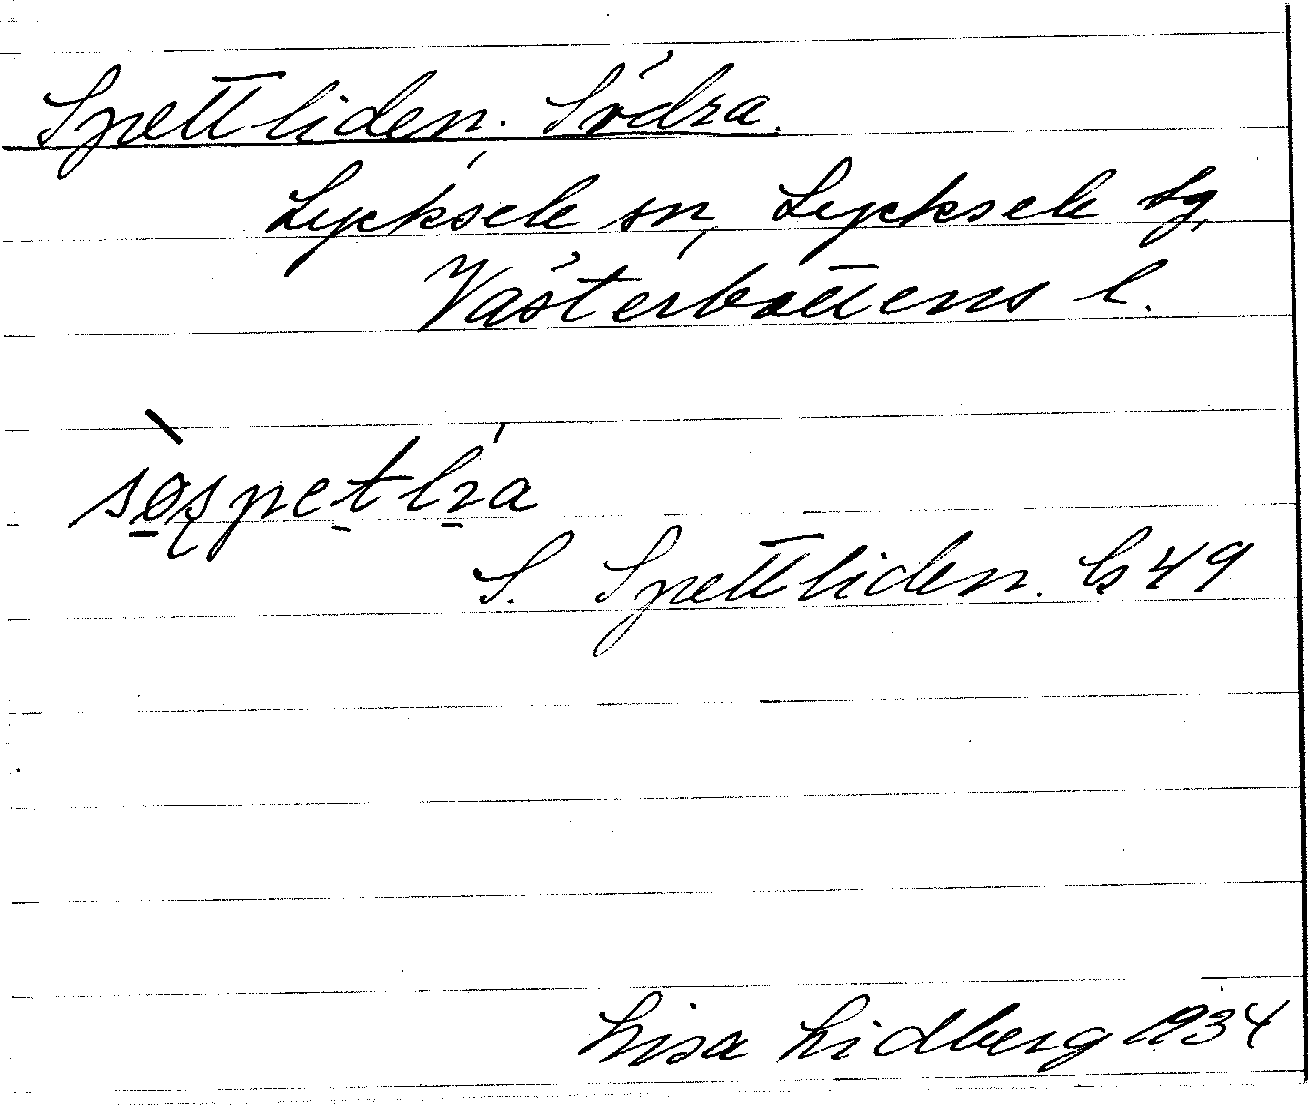 Spettliden, Södra.
Lycksele sn, Lycksele lg,
Västerbottens l.
S. Spettliden. b 49
Lisa Lidberg 1934